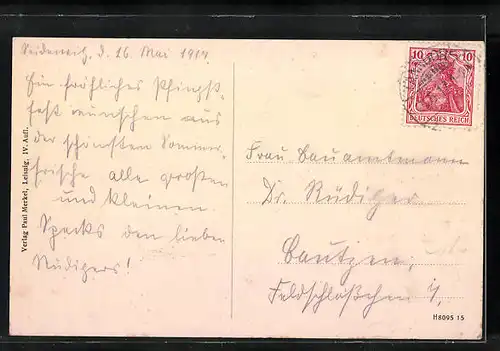 d. 26. Mai 1914
Ein fröhliches Pfingst-
fest wünschen aus
der schönsten Sommer-
frische alle großen
und kleinen
Specks den lieben
Rüdigers!
Verlag Paul Merkel, Leisnig, IV. Aufl.
10 10
DEUTSCHES REICH
Frau Bauamtmann
Dr. Rüdiger
Bautzen,
Feldschlößchen
H8095 15